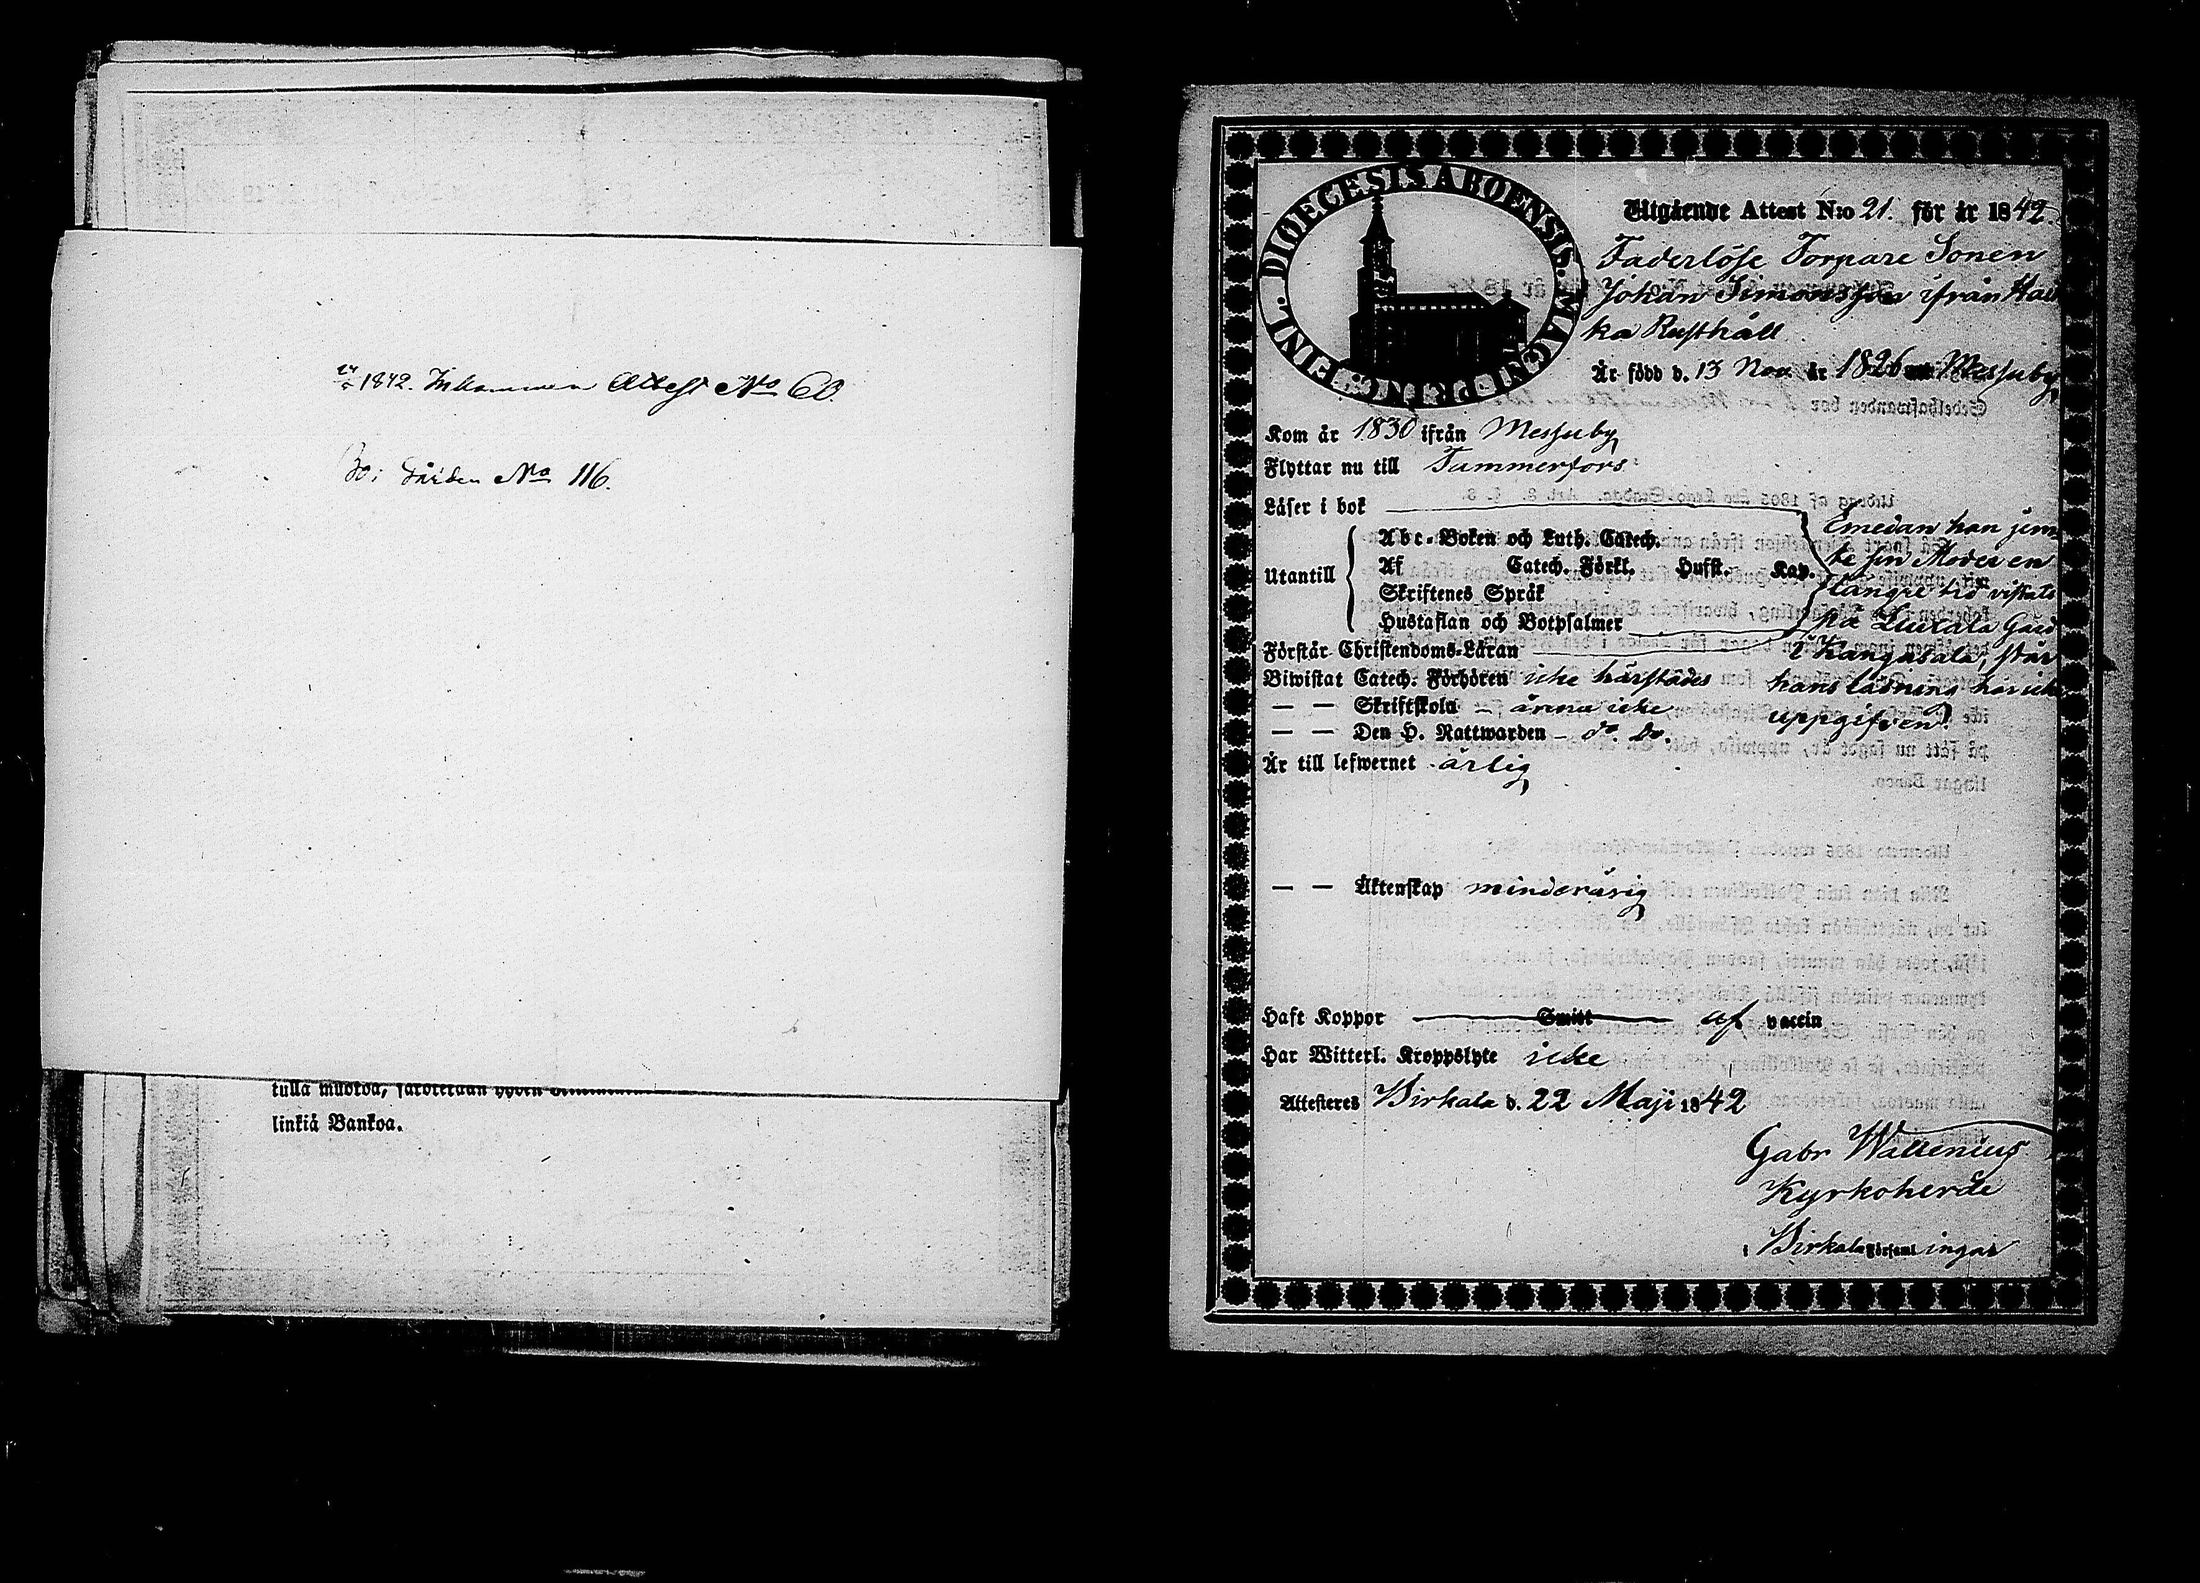 1842. Inkommen Attest No 60.
Bo i Gården No 116.
tulla muotoa,
linkiä Bankoa.
DIOECESIS ABOENSIS. MAGNI PRINC. FINL.
Utgående Attest N:o 21. för år 1842.
Faderlöse Torpare Sonen
Johan Simonsson ifrån
ka Rusthåll
Är född d. 13 Nov. år 1826 Messuby
Kom år 1830 ifrån Messuby
Flyttar nu till Tammerfors
Läser i bok
Utantill
Abc-Boken och Luth. Catech.
Af Catech. Förkl. Husst. Kap.
Skriftenes Språk
Hustaflan och Botpsalmer
Emedan han jem-
te sin Moder en
längre tid vistats
på Liuxala Gård
i Kangasala, står
hans läsning har icke
uppgifven.
Förstår Christendoms-Läran
Biwistat Catech. Förhören icke härstädes
— — Skriftskola – ännu icke
— — Den H. Nattwarden – do. do.
Är till lefwernet ärlig
— — Äktenskap minderårig
Haft Koppor Smitt af vaccin
Har Witterl. Kroppslyte icke
Attesteres Birkala d. 22 Maji 1842
Gabr Wallenius
Kyrkoherde
i Birkala Församlingar